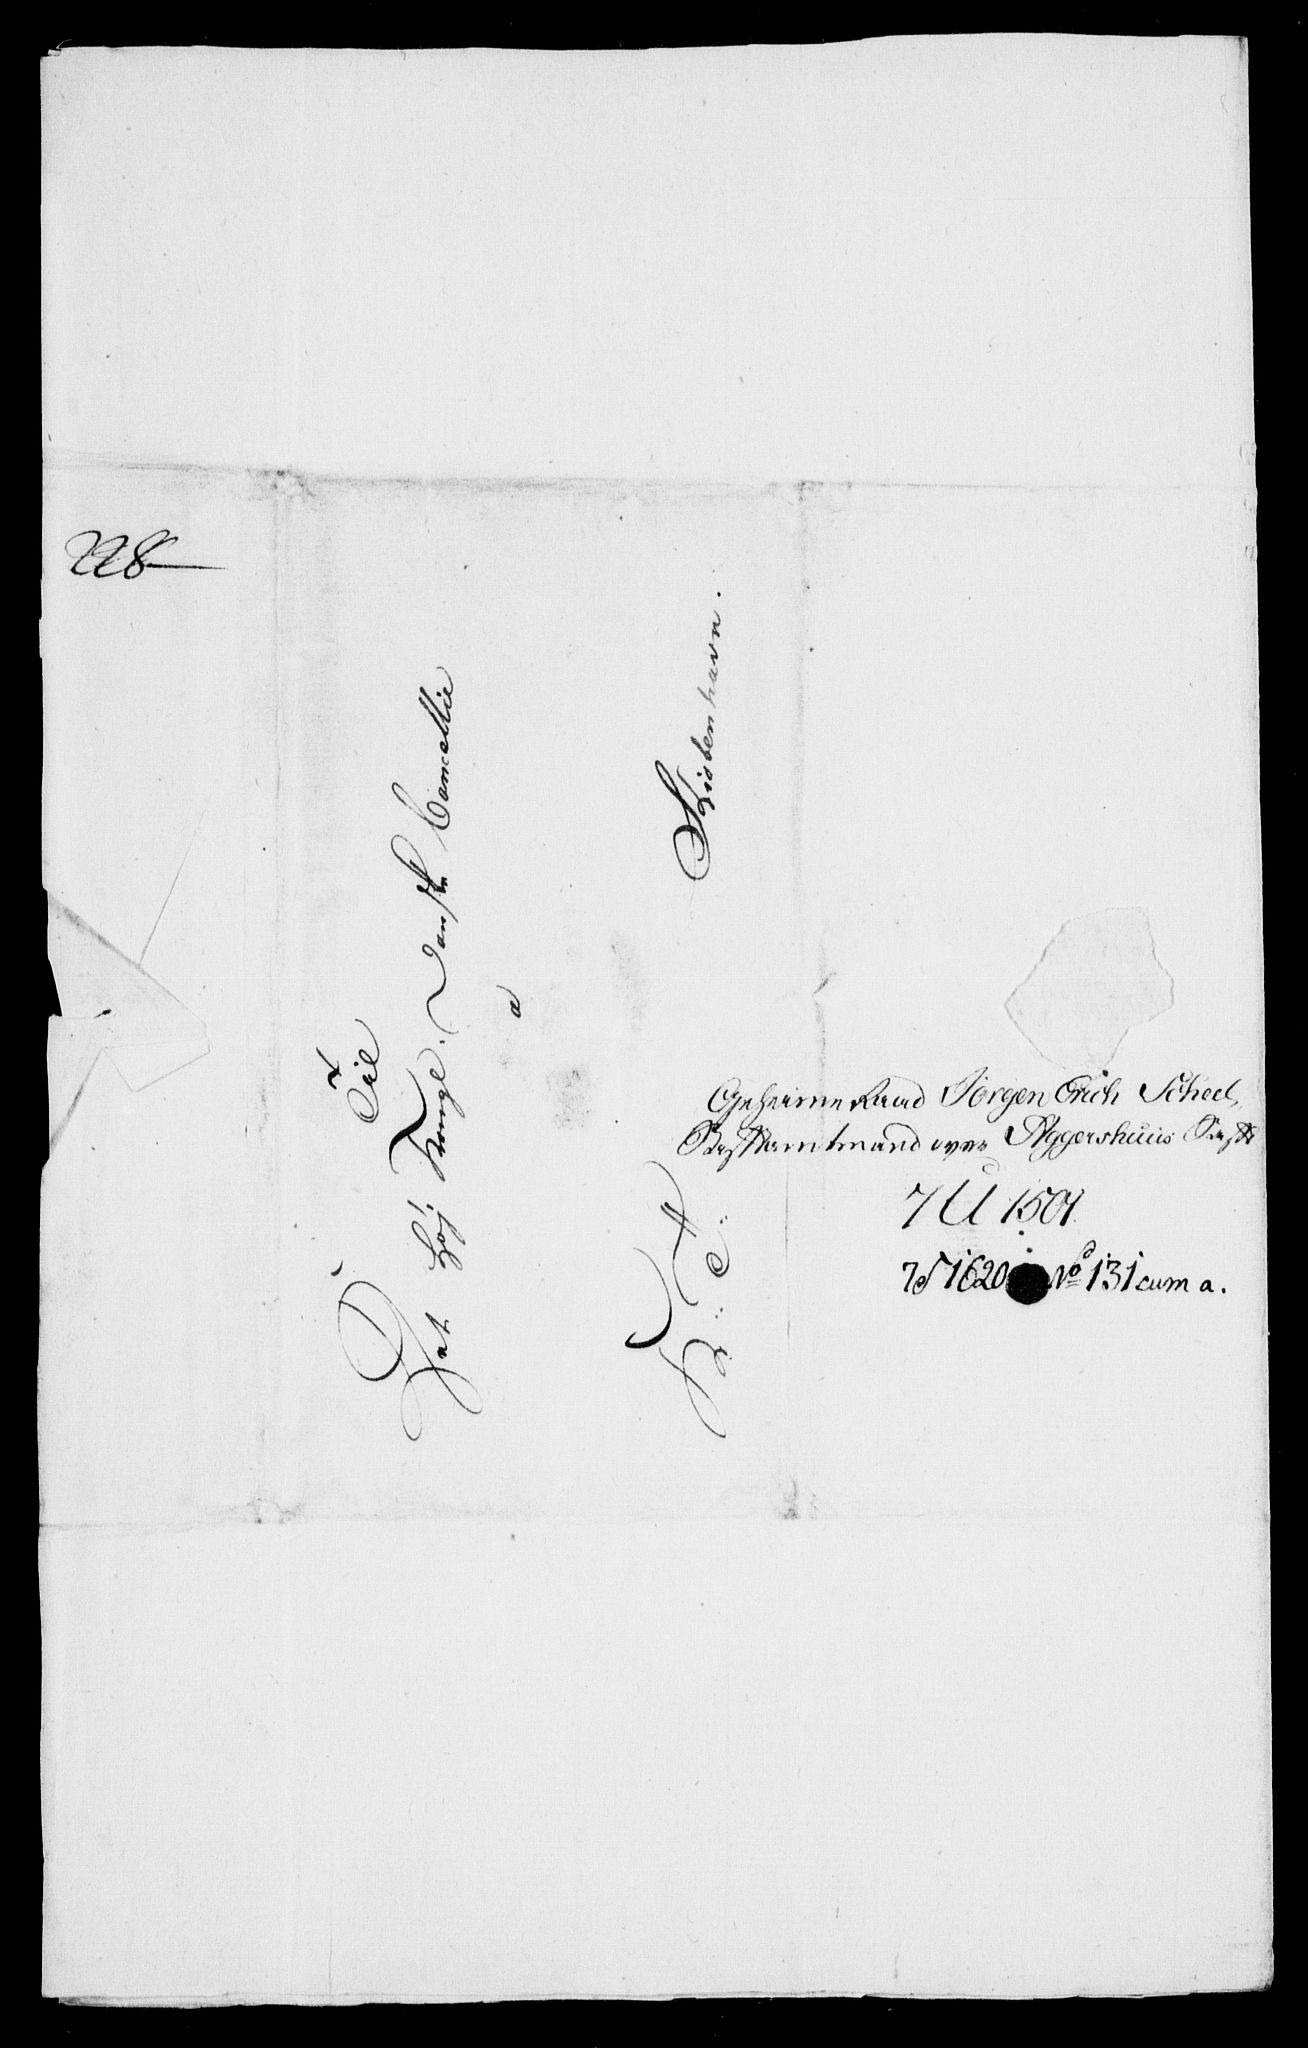 228
Til
Det Høj: Kongl: Danske Cancellie
a
K: T: Kiøbenhavn.
Geheime Raad Jörgen Erich Scheel,
Stiftamtmand over Aggershuus Stift
7 U 1501
No 131 cum a.